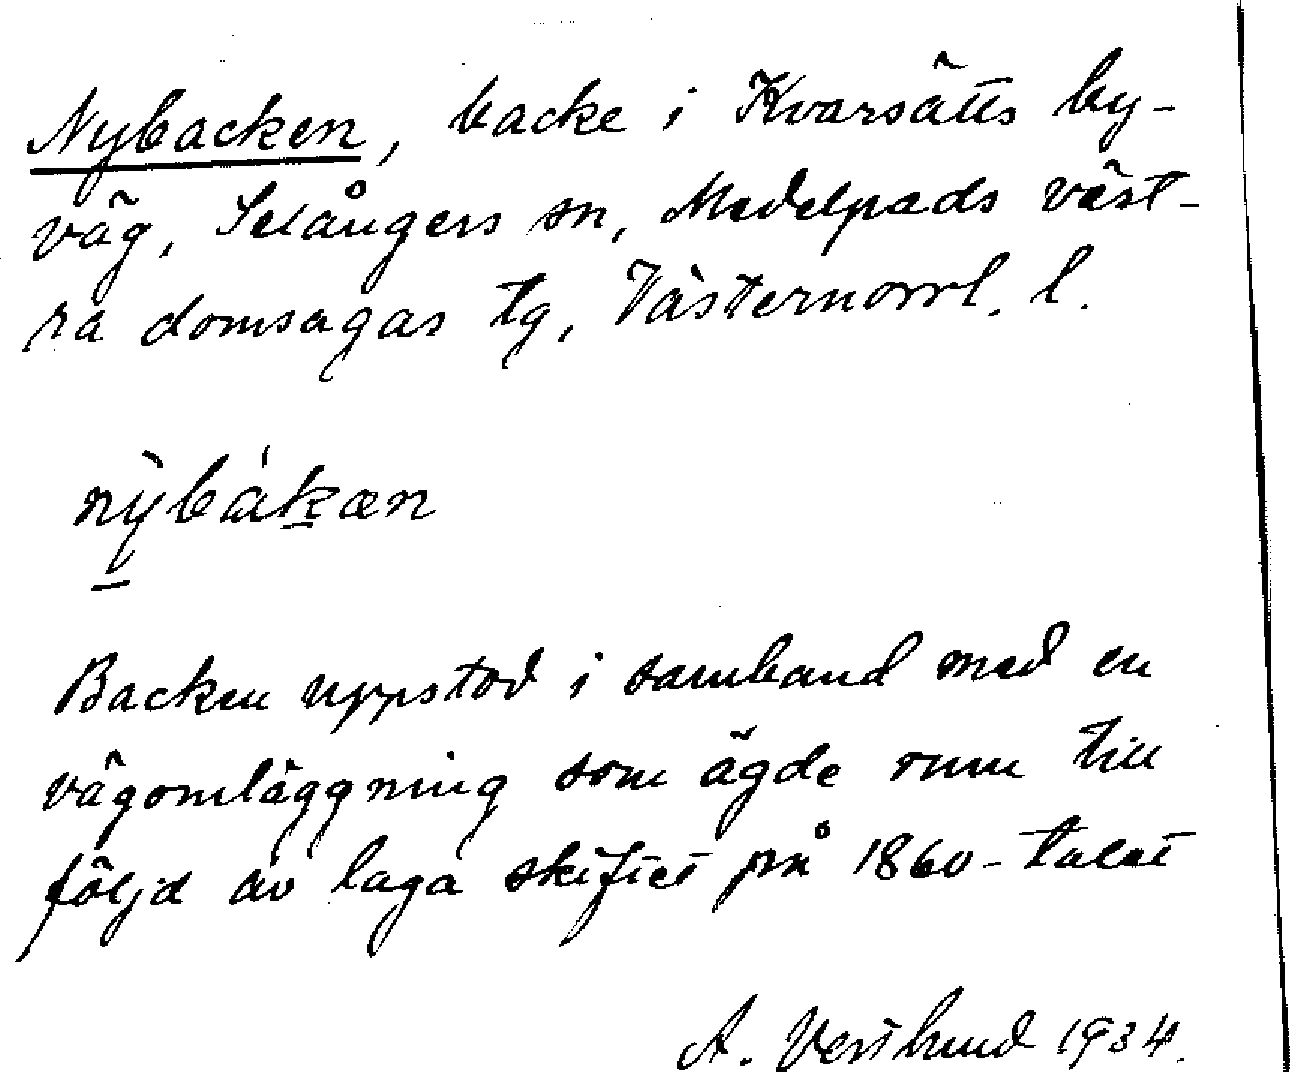 Nybacken, backe i Kvarsätts by-
väg, Selångers sn, Medelpads väst-
ra domsagas tg, Västernorrl. l.
nỳbákæn
Backen uppstod i samband med en
vägomläggning som ägde rum till
följd av laga skiftet på 1860-talet
A. Vestlund 1934.